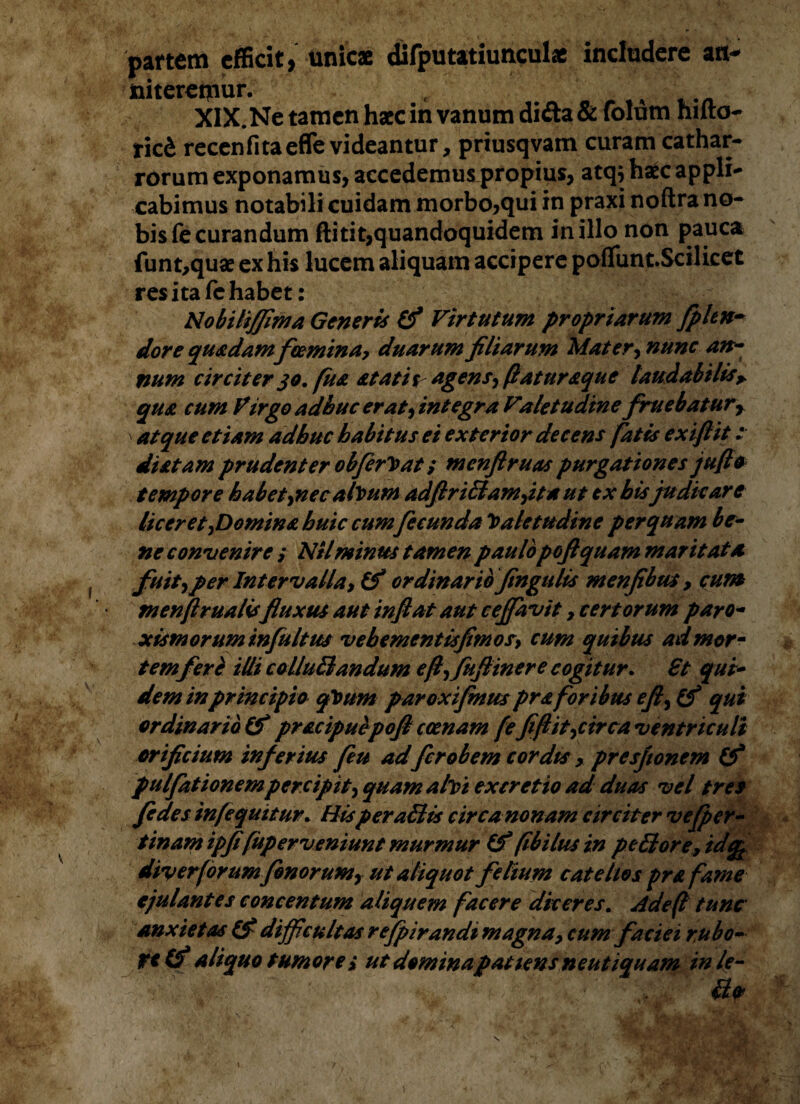 partem efficit, unicæ difputatiunculæ includere an-
niteremur.
XIX. Ne tamen hæc in vanum dicta & folùm hifto-
ricè recenfita effe videantur, priusqvam curam cathar-
rorum exponamus, accedemus propius, atq; hæc appli-
cabimus notabili cuidam morbo,qui in praxi noftra no-
bis fe curandum ftitit,quandoquidem in illo non pauca
funt,quæ ex his lucem aliquam accipere poffunt.Scilicet
res ita fe habet:
Nobiliffima Generis & Virtutum propriarum fplen-
dore quædam fœmina, duarum filiarum Mater, nunc an-
num circiter 30. fuæ ætatis agens, ftaturæque laudabilis,
quæ cum Virgo adhuc erat, integra Valetudine fruebatur,
atque etiam adhuc habitus ei exterior decens fatis exiftit:
diætam prudenter obfervat; menftruas purgationes jufto
tempore habet,nec alvum adftrictam,ita ut ex his judicare
liceret,Dominæ huic cum fecunda valetudine perquam be-
ne convenire; Nil minus tamen paulò poftquam maritata
fuit,per Intervalla, & ordinariò fingulis menfibus, cum
menftrualis fluxus aut inftat aut ceffavit, certorum paro-
xismorum infultus vehementisfimos, cum quibus ad mor-
tem ferè illi colluctandum eft, fuftinere cogitur. Et qui-
dem in principio qvum paroxifmus præ foribus eft, & qui
ordinariò & præcipuè poft cœnam fe fiftit,circa ventriculi
orificium inferius feu ad fcrobem cordis, presfionem &
pulfationem percipit, quam alvi excretio ad duas vel tres
fedes infequitur. His peractis circa nonam circiter vefper-
tinam ipfi fuperveniunt murmur & fibilus in pectore, idq;
diverforum fonorum, ut aliquot felium catellos præ fame
ejulantes concentum aliquem facere diceres. Adeft tunc
anxietas & difficultas refpirandi magna, cum faciei rubo-
re & aliquo tumore; ut domina patiens neutiquam in le-
cto